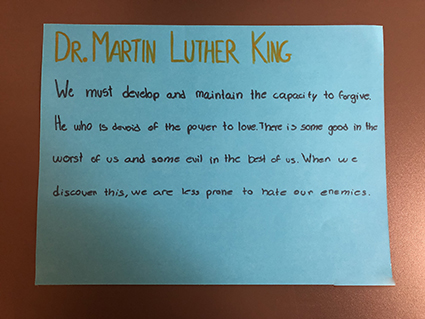 DR. MARTIN LUTHER KING
We must develop and maintain the capacity to forgive.
He who is devoid of the power to love. There is some good in the
worst of us and some evil in the best of us. When we
discover this, we are less prone to hate our enemies.